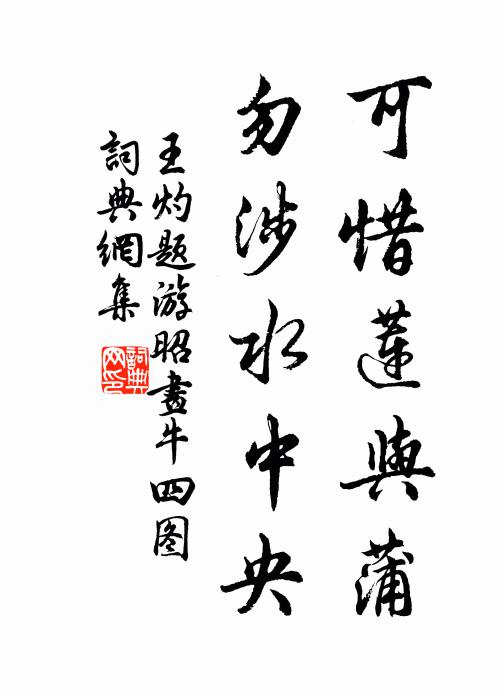 可惜蓮與蒲
勿涉水中央
王灼题游昭畫牛四图
詞典網集
詞典网印